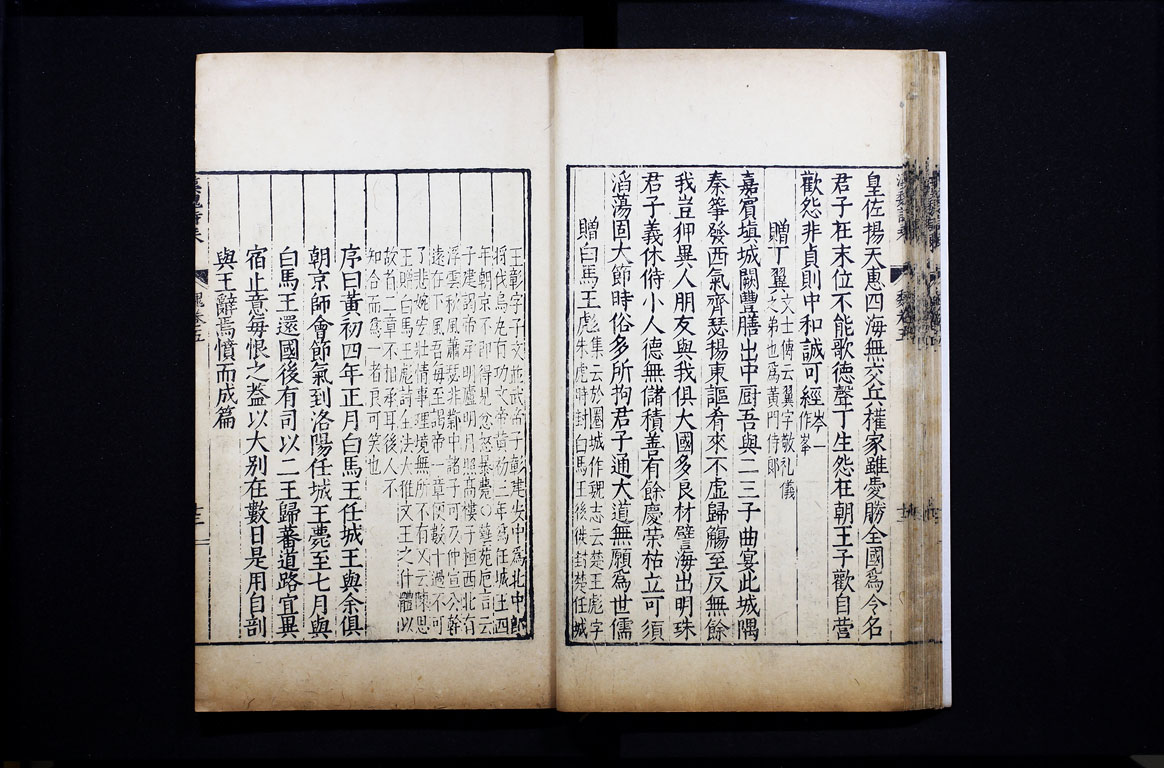 皇佐揚天惠四海無交兵權家雖愛勝全國為令名
君子在末位不能歌德聲丁生怨在朝王子歡自營
歡怨非貞則中和誠可經岑一作峯
贈丁翼文士傳云翼字敬礼儀之弟也為黃門侍郎
嘉賓塡城闕豐膳出中厨吾與二三子曲宴此城隅
秦箏發西氣齊瑟揚東謳肴來不虛歸觴至反無餘
我豈狎異人朋友與我俱大國多良材譬海出明珠
君子義休偫小人德無儲積善有餘慶荣枯立可須
滔蕩固大節時俗多所拘君子通大道無願為世儒
贈白馬王彪集云於圈城作魏志云楚王彪字朱虎時封白馬王後徙封楚任城
王彰字子文並武帝子彰建安中為北中郎
將伐烏丸有功文帝黃初三年為任城王四
年朝京不即得見忿怒暴薨○藝苑巵言云
子建謁帝承明廬明月照高樓子桓西北有
浮雲秋風蕭瑟非鄴中諸子可及仲宣公幹
遠在下風吾每至謁帝一章便數十過不可
了悲婉宏壯情事理境無所不有又云陳思
王贈白馬王彪詩全法大雅文王之什體以
故首二章不相承耳後人不
知合而為一者良可笑也
序曰黃初四年正月白馬王任城王與余俱
朝京師會節氣到洛陽任城王薨至七月與
白馬王還國後有司以二王歸蕃道路宜異
宿止意每恨之葢以大别在數日是用自剖
與王辭焉憤而成篇
魏卷五